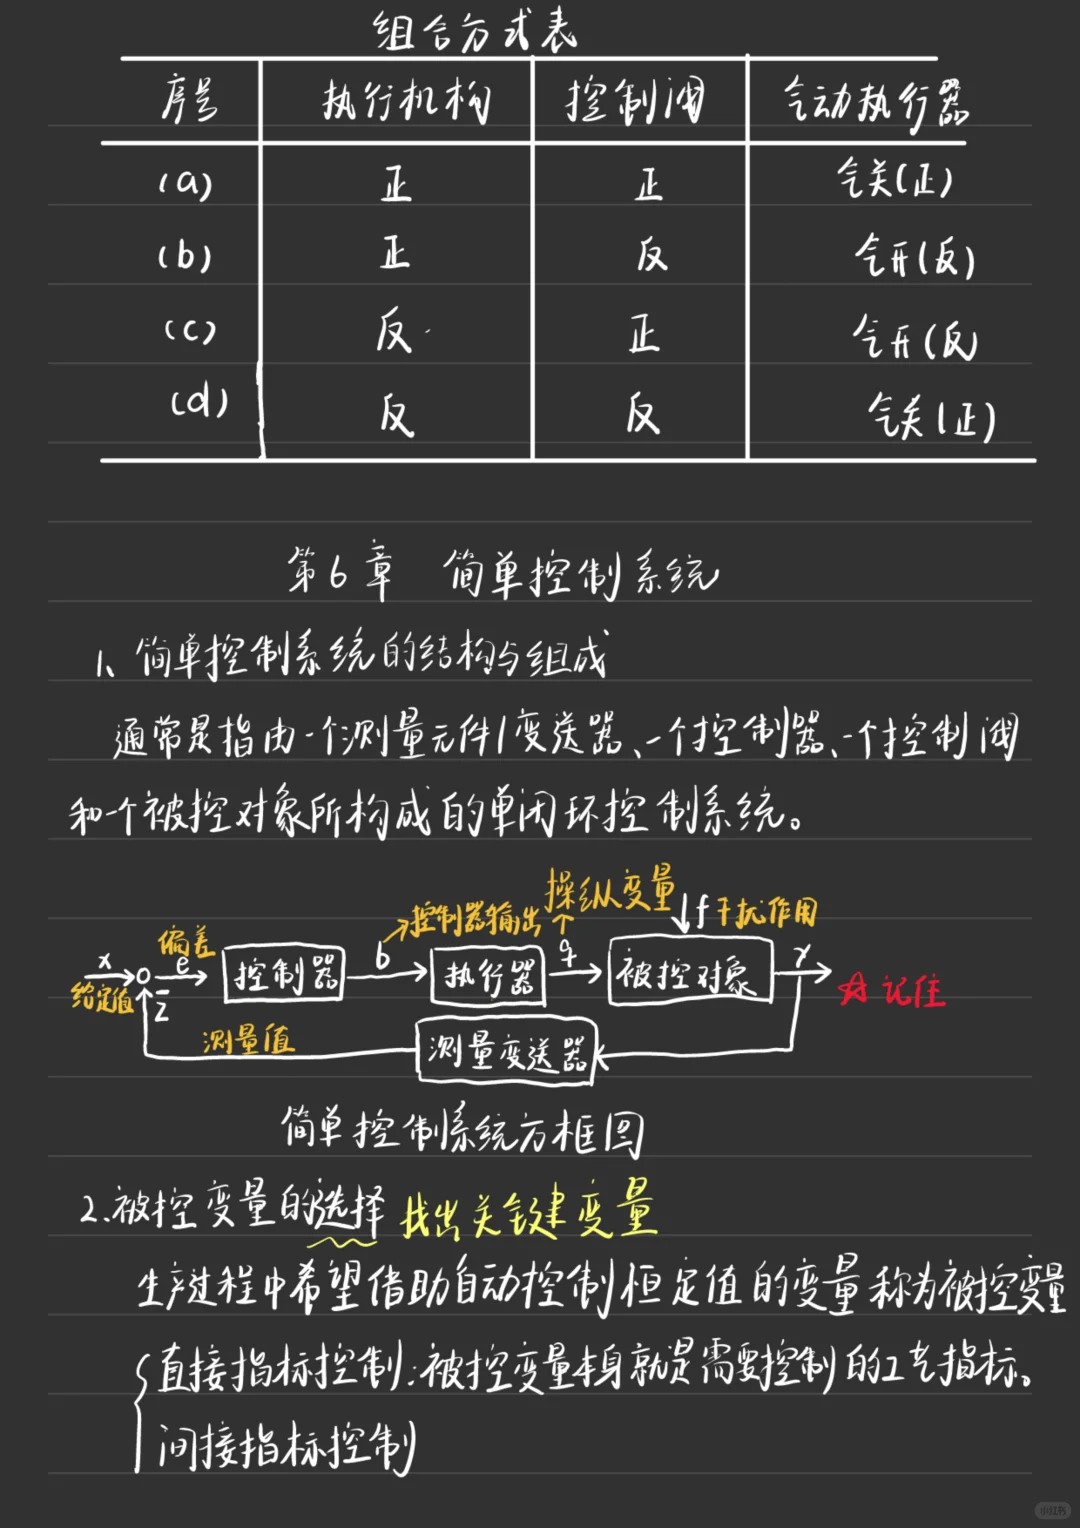 组合方式表
序号 执行机构 控制阀 气动执行器
(a) 正 正 气关(正)
(b) 正 反 气开(反)
(c) 反 正 气开(反
(d) 反 反 气关(正)
第6章 简单控制系统
1、简单控制系统的结构与组成
通常是指由一个测量元件/变送器、一个控制器、一个控制阀
和一个被控对象所构成的单闭环控制系统。
操纵变量
控制器输出 f 干扰作用
x 偏差 e 控制器 b 执行器 q 被控对象 y ☆记住
给定值 z
测量值 测量变送器
简单控制系统方框图
2.被控变量的选择 找出关键变量
生产过程中希望借助自动控制恒定值的变量称为被控变量
直接指标控制:被控变量本身就是需要控制的工艺指标。
间接指标控制
小红书